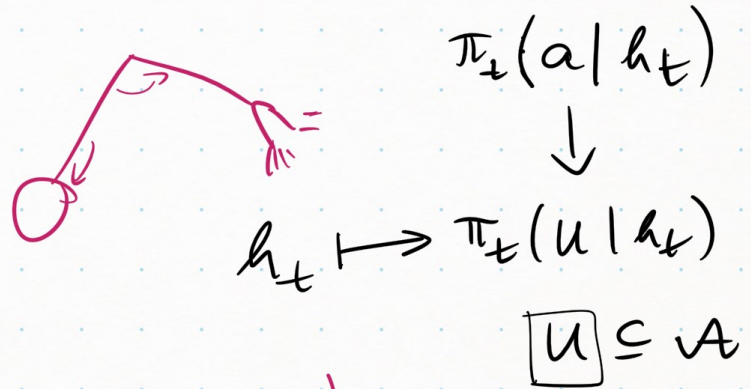 π_t(a|h_t)
↓
h_t ↦ π_t(U|h_t)
U ⊆ A